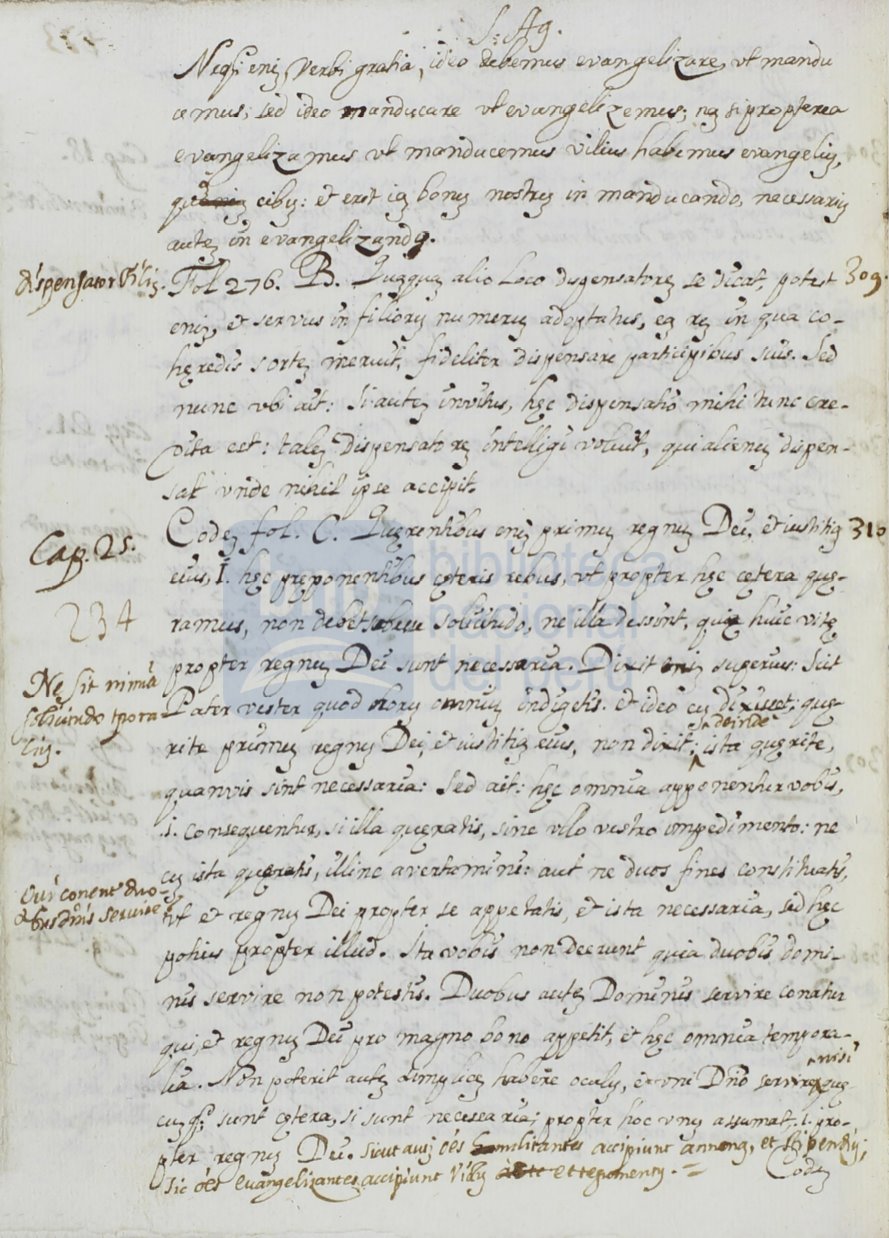 S. Ag.
Neq; enim, Verbi gratia, ideo debemus evangelizare, vt mandu
cemus; sed ideo manducare vt evangelizemus; nam si propterea
evangelizamus vt manducemus vilius habemus evangelium,
quam cibum: et erit iam bonum nostrum in manducando, necessarium
autem in evangelizando.
dispensator Filius.
Fol 276. B. Quamquam alio loco dispensatorem se dicat, potest 309.
enim, et servus in filiorum numerum adoptatus, eam rem in qua co-
hęredis sortem meruit, fideliter dispensare participibus suis. Sed
nunc vbi ait: Si autem invitus, hęc dispensatio mihi tunc cre-
dita est: talem dispensatorem intelligi voluit, qui alienum dispen-
sat vnde nihil ipse accipit.
Cap. 25.
Codem fol. C. Quęrentibus enim primum regnum Dei, et iustitiam 310
eius, I. hęc pręponentibus cęteris rebus, vt propter hęc cętera quę-
234
ramus, non debet solicitudo, ne illa dessint, quę huic vitę
propter regnum Dei sunt necessaria. Dixit enim superius: Scit
Ne sit nimia
solicitudo tpora-
lium.
Pater vester quod horum omnium indigetis. et ideo cum dixisset; quę-
rite primum regnum Dei, et iustitiam eius, non dixit; deinde ista quęrite,
quamvis sint necessaria: Sed ait: hęc omnia apponentur vobis,
.i. consequentur, si illa quęratis, sine vllo vestro impedimento: ne
cum ista quęratis, illinc avertamini: aut ne duos fines constituatis,
Qui conent duo-
bus dnis servire
vt et regnum Dei propter se appetatis, et ista necessaria, sed hęc
potius propter illud. Ita vobis non deerunt quia duobus domi-
nis servire non potestis. Duobus autem Dominis servire conatur
qui, et regnum Dei pro magno bono appetit, et hęc omnia tempora-
lia. Non poterit autem simplicem habere oculum, et vni Dno servire, nisi quę-
cumq; sunt cętera, si sunt necessaria, propter hoc vnum assumat .i. pro-
pter regnum Dei. Sicut autem oẽs militantes accipiunt annonam, et stipendium;
sic oẽs evangelizantes accipiunt victum et tegumentum.
Codem